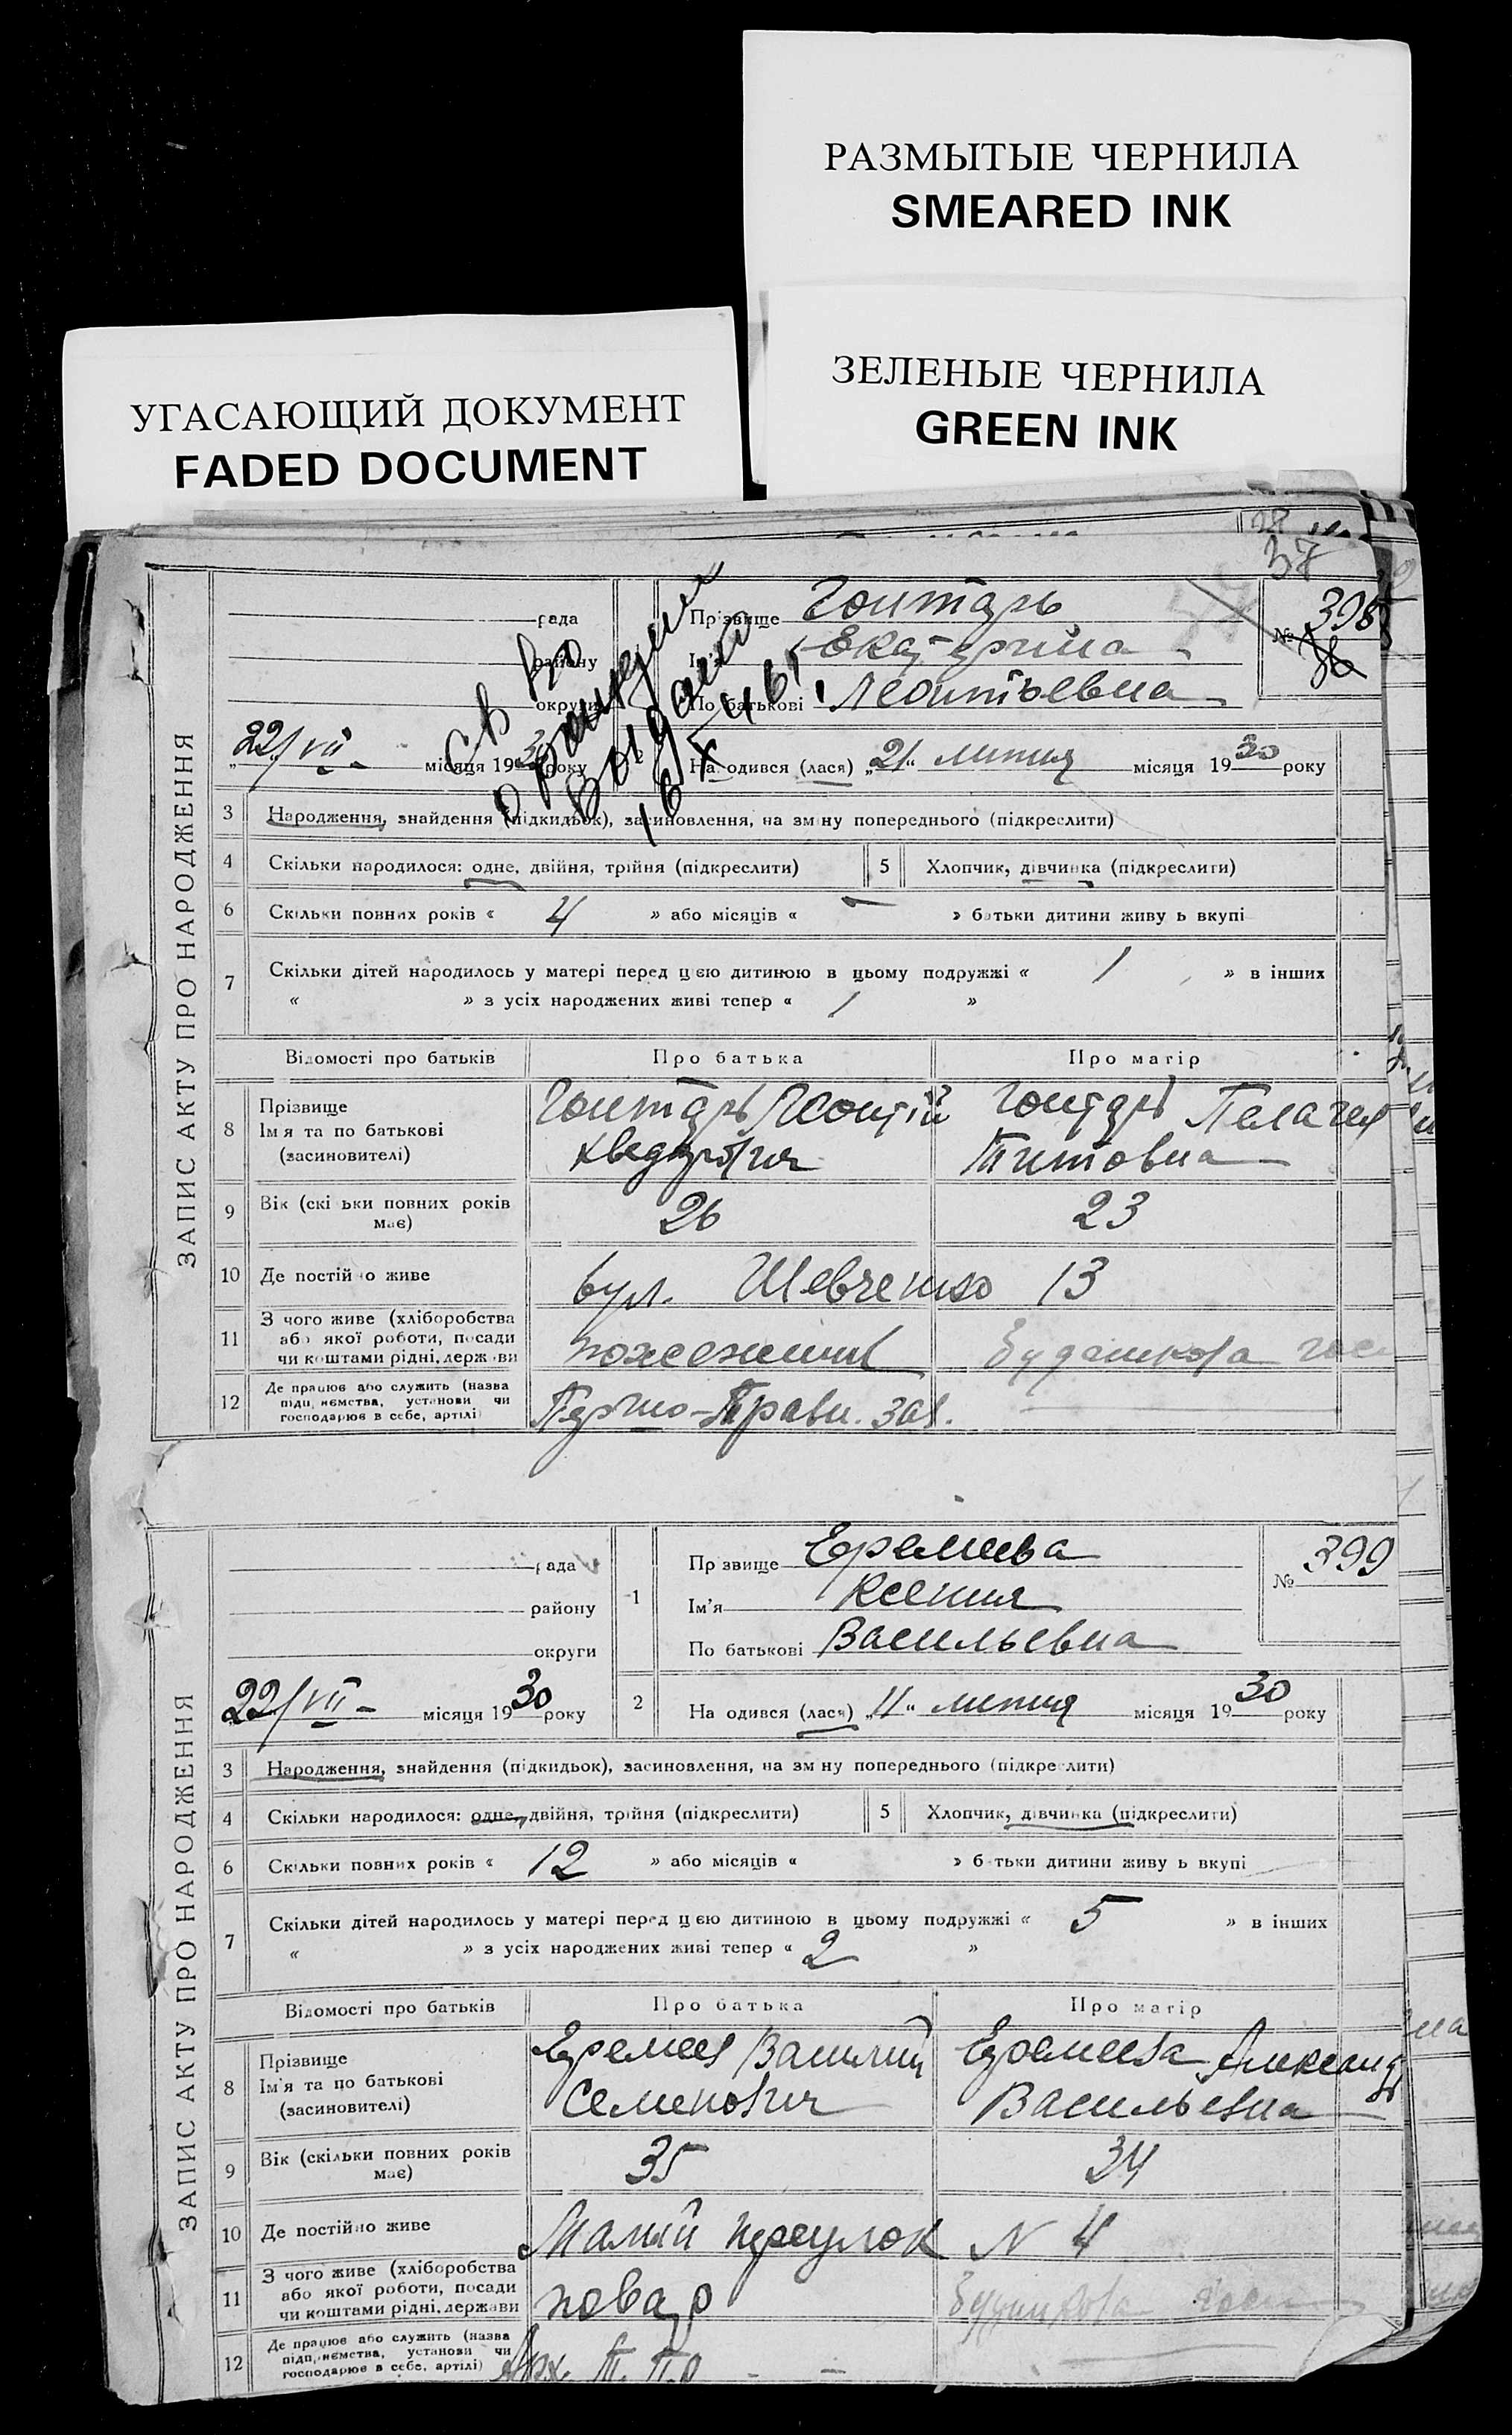 РАЗМЫТЫЕ ЧЕРНИЛА
SMEARED INK
ЗЕЛЕНЫЕ ЧЕРНИЛА
GREEN INK
УГАСАЮЩИЙ ДОКУМЕНТ
FADED DOCUMENT
28
37
ЗАПИС АКТУ ПРО НАРОДЖЕННЯ
рада
району
округи
22/VII - місяця 1930 року
Прізвище Гонтарь
Ім'я Екатерина
По батькові Леонтьевна
№ 398
36
На одився (лася) „21“ липня місяця 1930 року
св во
выдано
16 X 461
3 Народження, знайдення (підкидьок), засиновлення, на зміну попереднього (підкреслити)
4 Скільки народилося: одне, двійня, трійня (підкреслити)
5 Хлопчик, дівчинка (підкреслити)
6 Скільки повних років « 4 » або місяців « — » батьки дитини живу ь вкупі
7 Скільки дітей народилось у матері перед цією дитиною в цьому подружжі « 1 » в інших
« » з усіх народжених живі тепер « 1 »
Відомості про батьків Про батька Про матір
8 Прізвище
Ім'я та по батькові
(засиновителі)
Гонтарь Леонтій
Гонтарь Пелагея
Титовна
9 Вік (скільки повних років має) 26 23
10 Де постійно живе вул. Шевченко 13
11 З чого живе (хліборобства
або якої роботи, посади
чи коштами рідні, держави
пожежник
12 Де працює або служить (назва
підприємства, установи чи
господарює в себе, артілі)
зав.
ЗАПИС АКТУ ПРО НАРОДЖЕННЯ
рада
району
округи
22/VII - місяця 1930 року
1 Прізвище Еремеева
Ім'я Ксения
По батькові Васильевна
№ 399
2 На одився (лася) „11“ липня місяця 1930 року
3 Народження, знайдення (підкидьок), засиновлення, на зміну попереднього (підкреслити)
4 Скільки народилося: одне, двійня, трійня (підкреслити)
5 Хлопчик, дівчинка (підкреслити)
6 Скільки повних років « 12 » або місяців « » батьки дитини живу ь вкупі
7 Скільки дітей народилось у матері перед цією дитиною в цьому подружжі « 5 » в інших
« » з усіх народжених живі тепер « 2 »
Відомості про батьків Про батька Про матір
8 Прізвище
Ім'я та по батькові
(засиновителі)
Еремеев Василий
Семенович
Еремеева Александр
Васильевна
9 Вік (скільки повних років має) 35 34
10 Де постійно живе Малий переулок N 4
11 З чого живе (хліборобства
або якої роботи, посади
чи коштами рідні, держави
повар
12 Де працює або служить (назва
підприємства, установи чи
господарює в себе, артілі)
Т. П. О